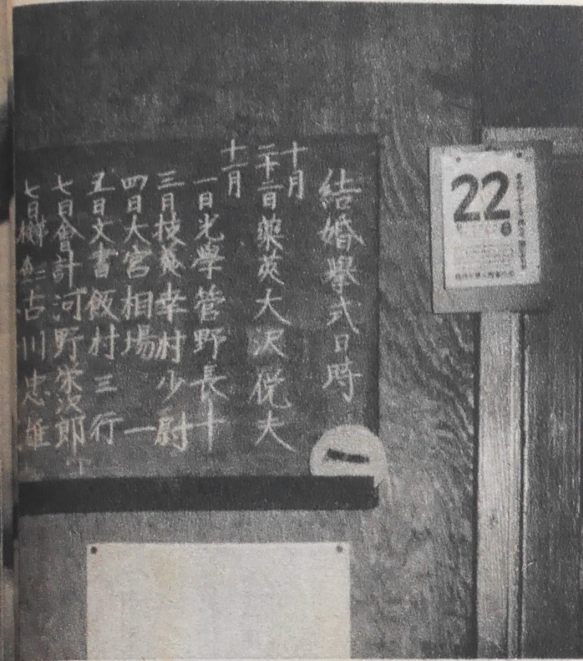 結婚擧式日時
十月
二十二日藥莢大沢倪夫
十一月
一日光學管野長十
三日技莢幸村少尉
四日大宮相場一
五日文書飯村三行
七日會計河野栄次郎
七日古川忠雄
一
22